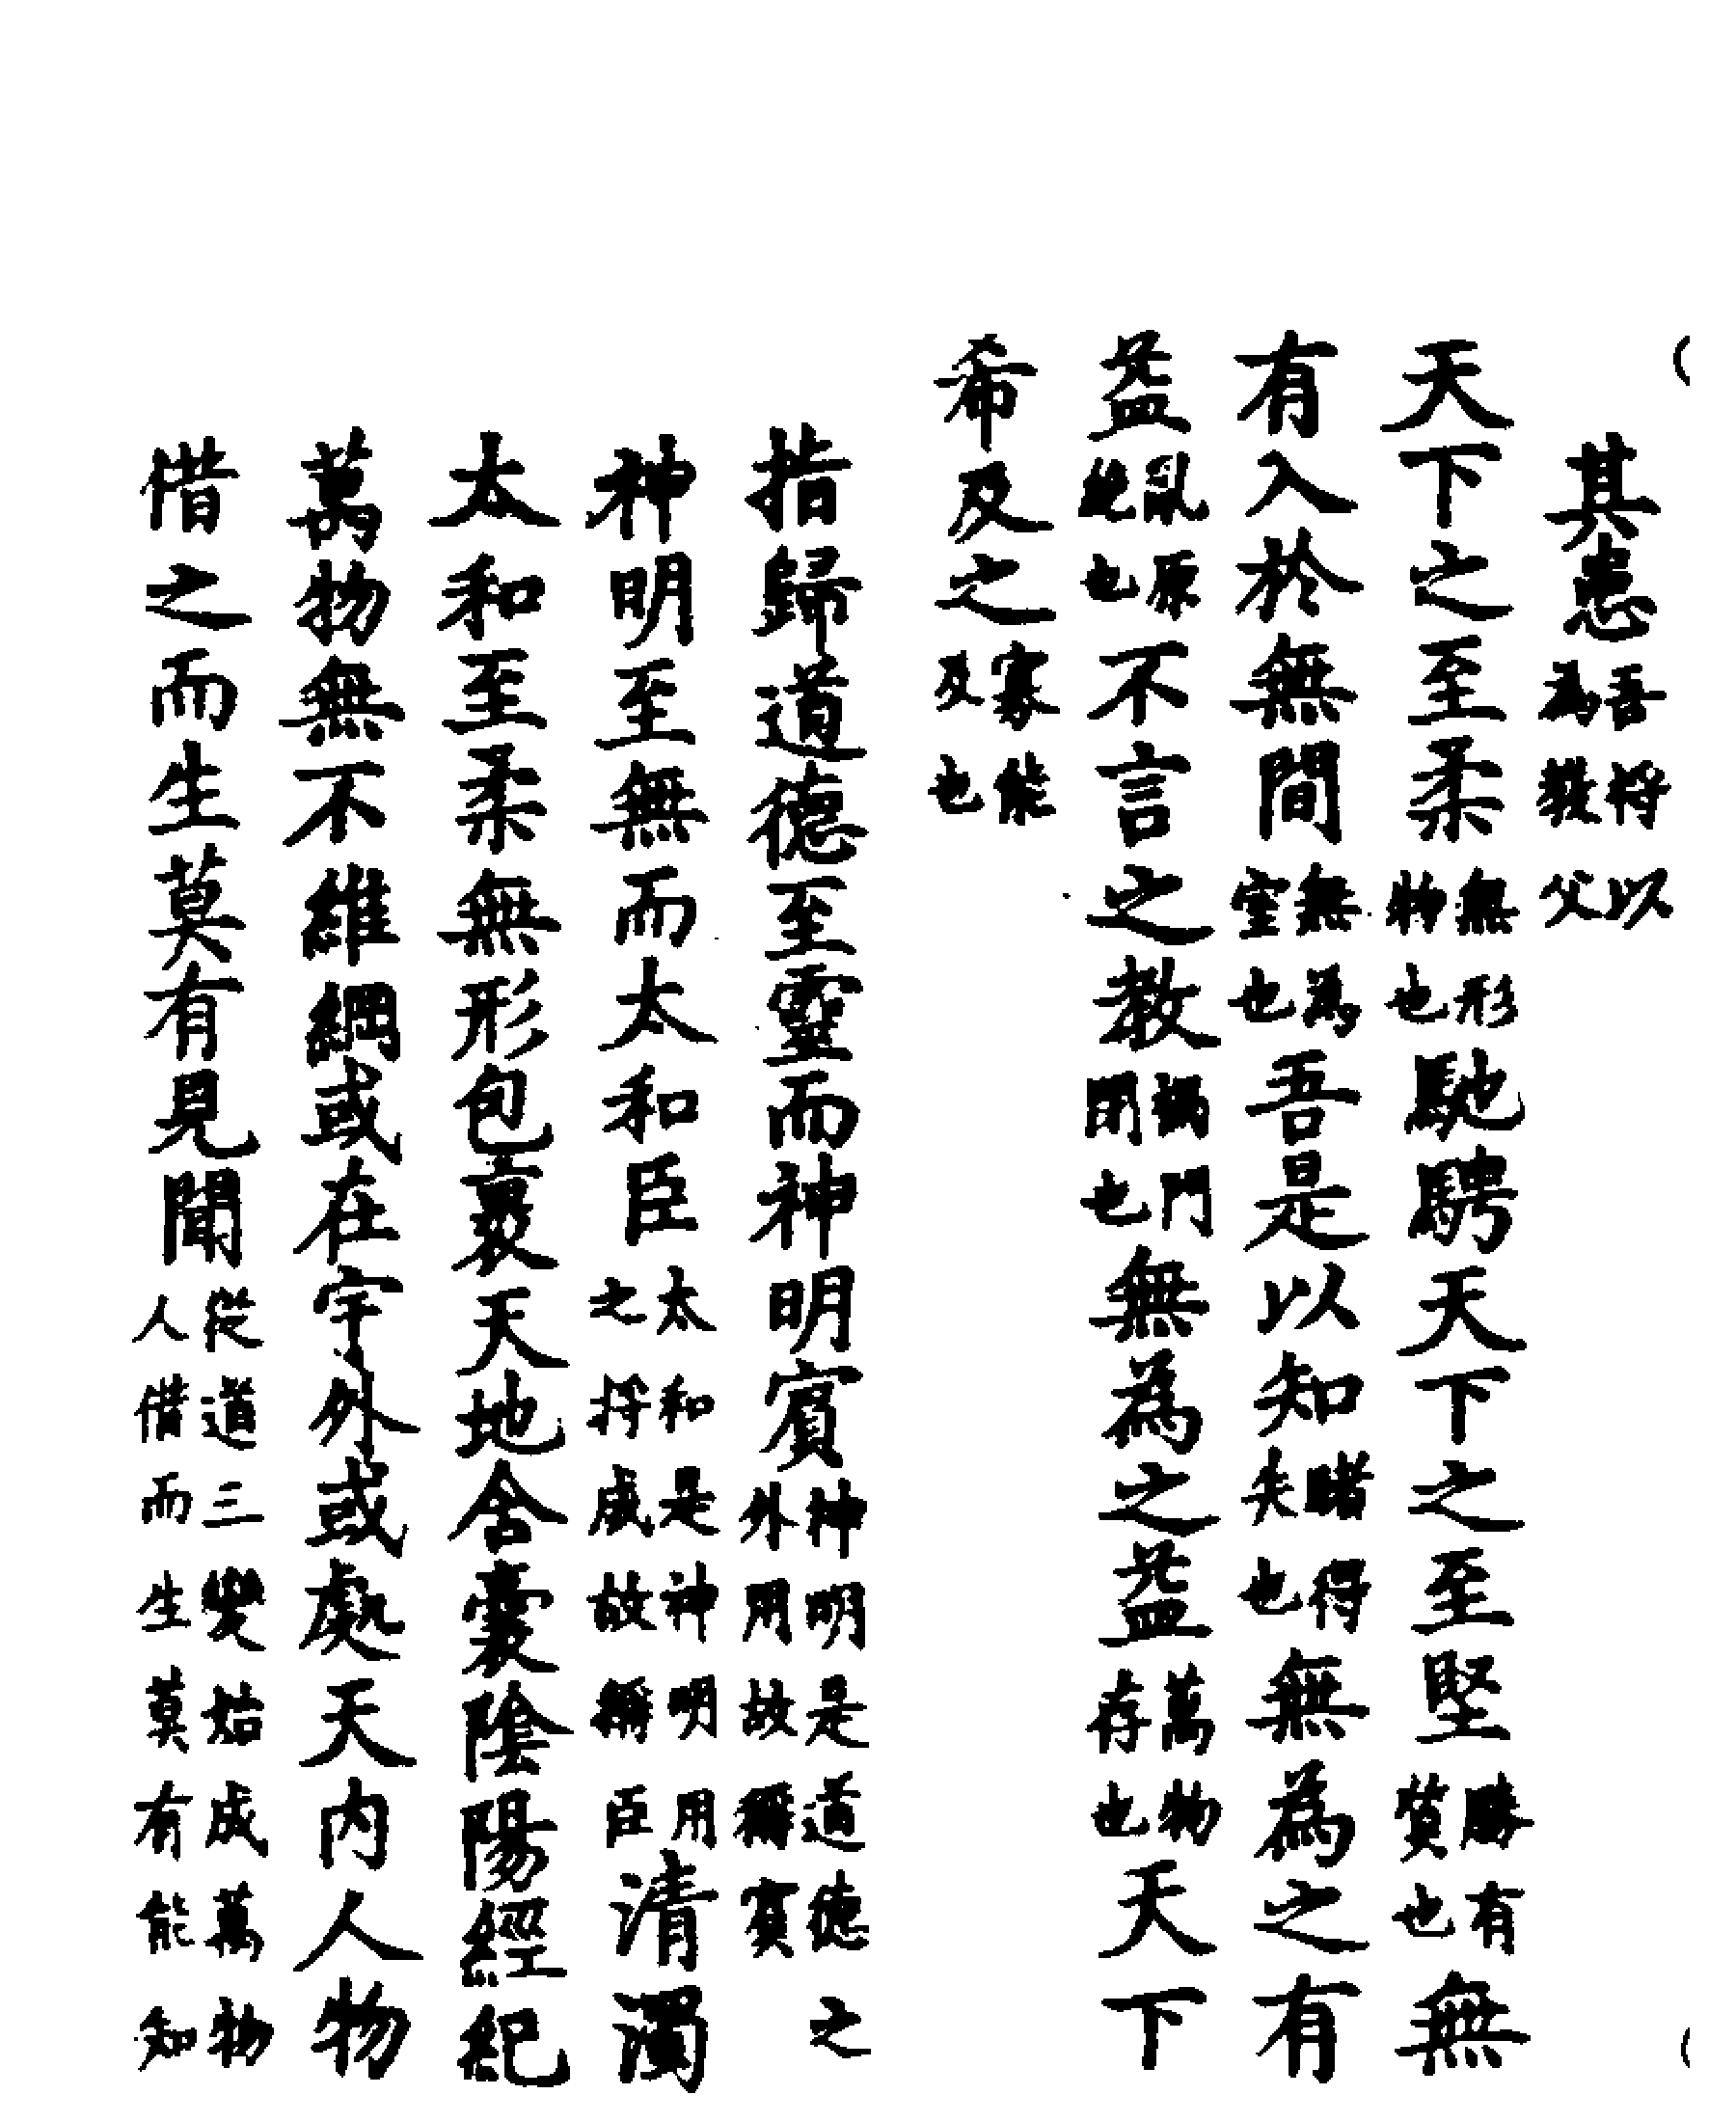 其患吾將以為教父
天下之至柔無形物也馳騁天下之至堅勝有質也有無
有入於無間無為室也吾是以知睹得失也無為之有
益亂原絶也不言之教禍門閉也無為之益萬物存也天下
希及之寡能及也
指歸道德至靈而神明賓神明是道德之外用故稱賓
神明至無而太和臣太和是神明用之將成故稱臣清濁
太和至柔無形包裹天地含囊陰陽經紀
萬物無不維綱或在宇外或處天内人物
借之而生莫有見聞從道三變始成萬物人借而生莫有能知